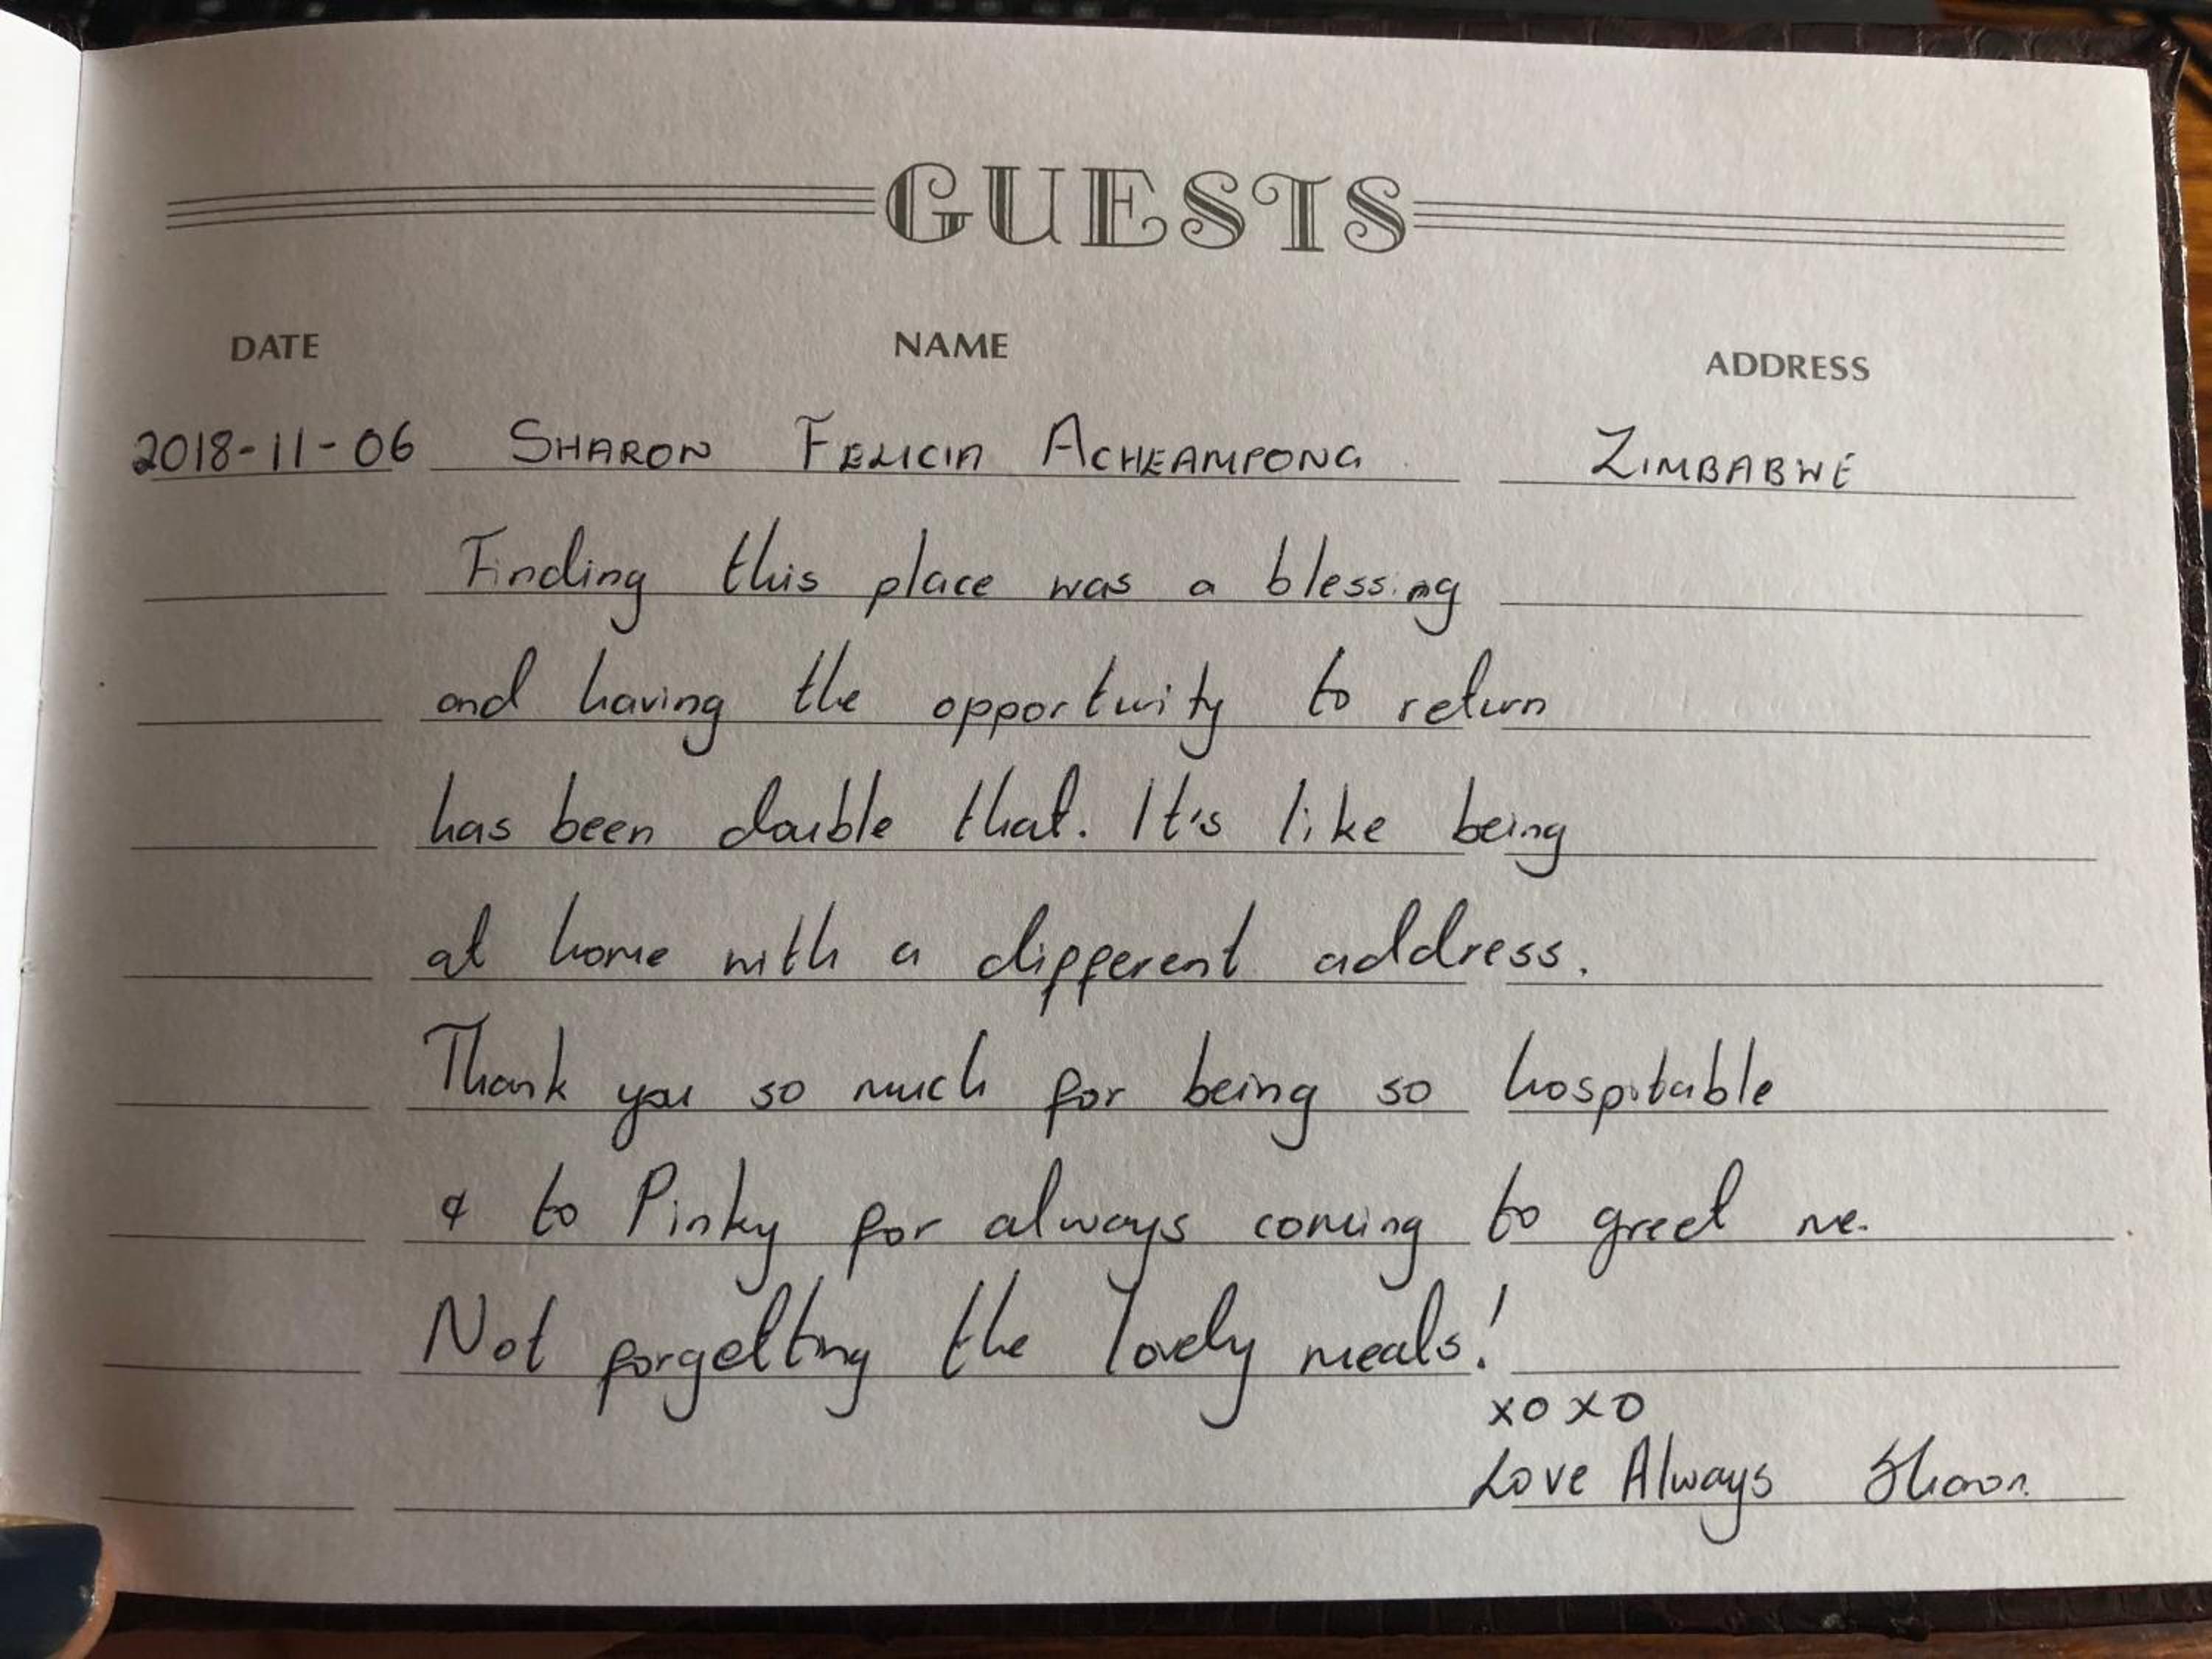 GUESTS
DATE NAME ADDRESS
2018-11-06 SHARON FELICIA ACHEAMPONG ZIMBABWE
Finding this place was a blessing
and having the opportunity to return
has been double that. It's like being
at home with a different address.
Thank you so much for being so hospitable
& to Pinky for always coming to greet me.
Not forgetting the lovely meals!
xoxo
Love Always Sharon.